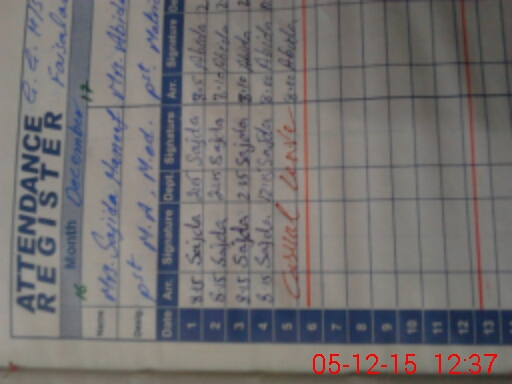 ATTENDANCE G. G. M/S
REGISTER Faisalabad
Month December
16 17
Name Mrs. Sajida Haneef Mrs. Abida
Desig. Pst M.A, M.ed. Pst Matric
Date Arr. Signature Dept. Signature Arr. Signature
1 8.15 Sajida 2:15 Sajda 8.15 Abida
2 8.15 Sajda 2:15 Sajda 8.10 Abida
3 8.15 Sajda 2:15 Sajda 8.10 Abida
4 8.15 Sajda 12:15 Sajda Abida
5 Casual Leave Abida
6
7
8
9
10
11
12
13
05-12-15 12:37